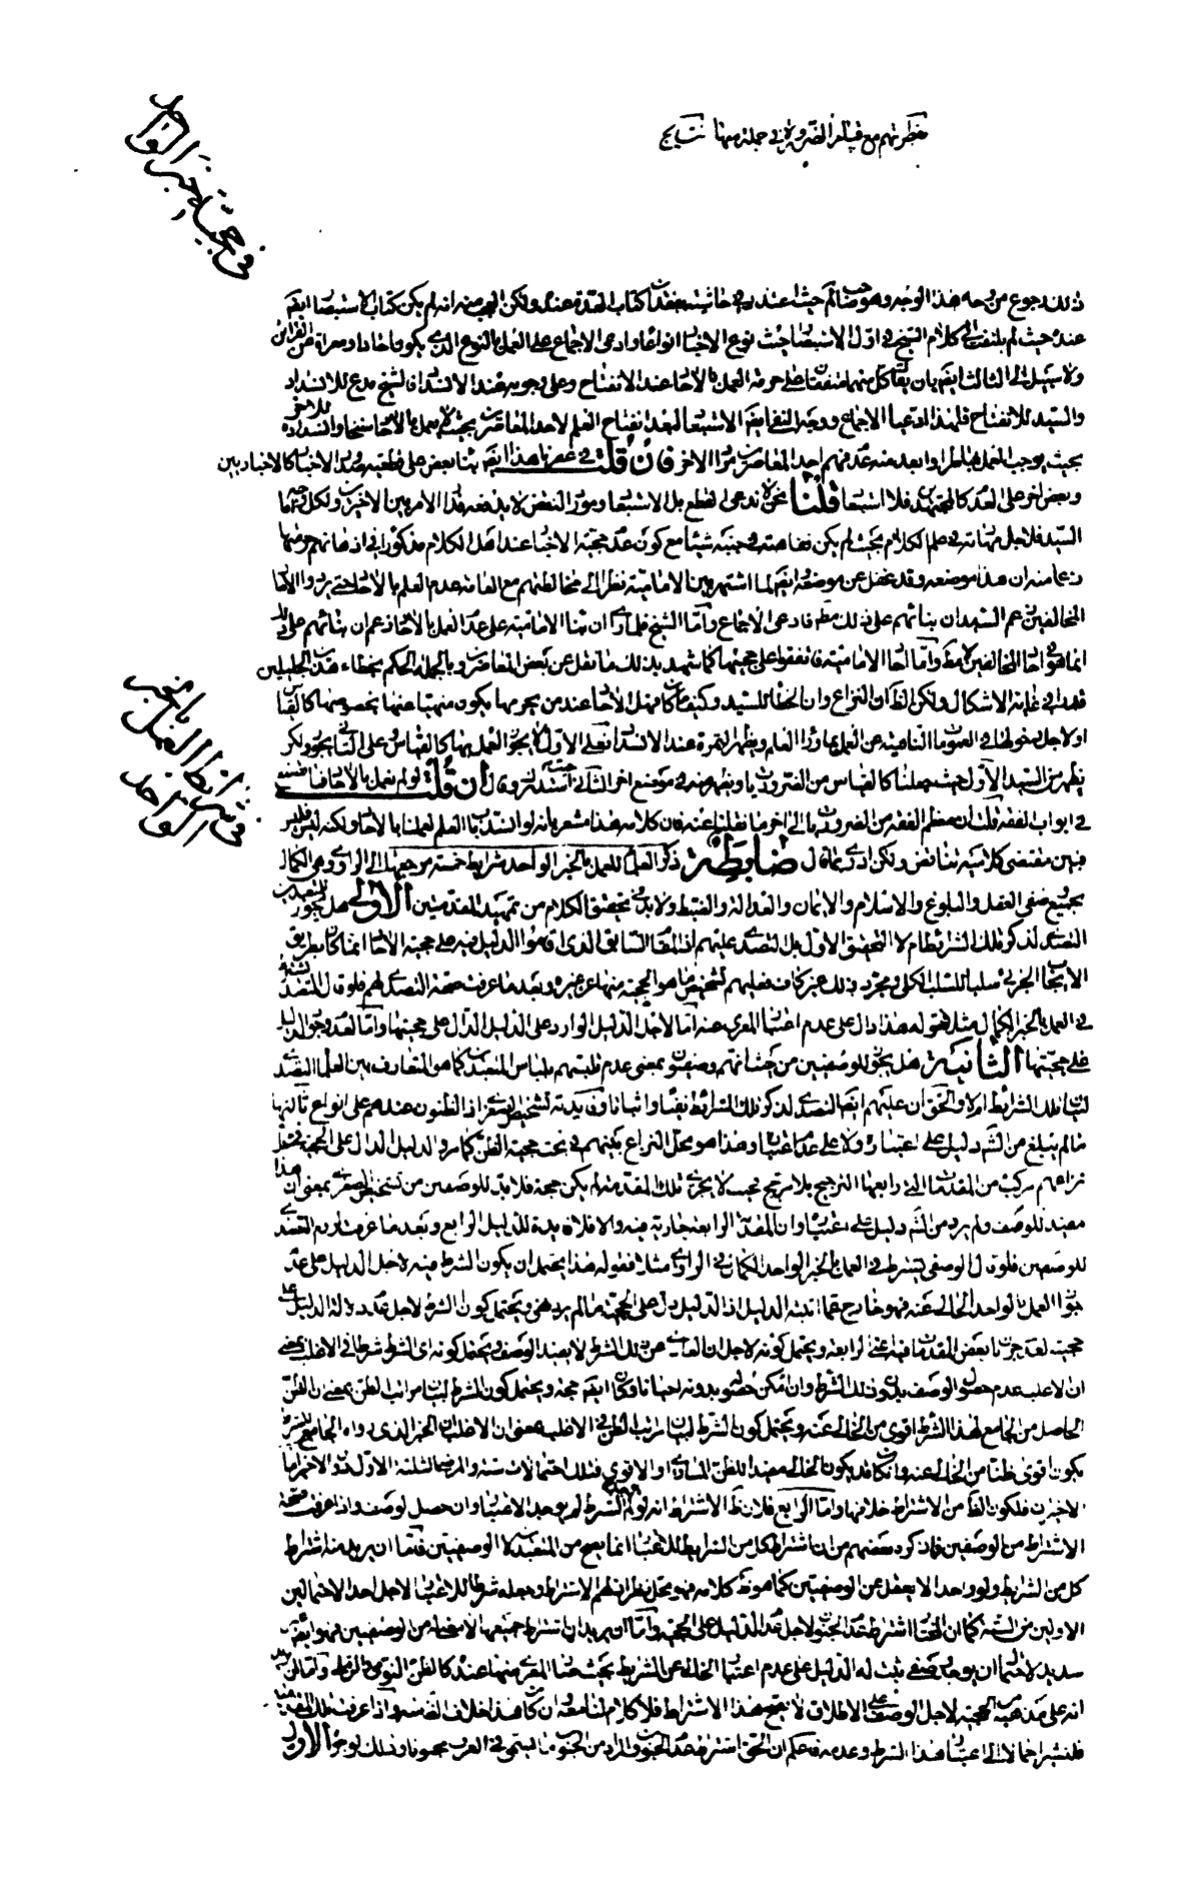 في حجية خبر الواحد
نظرتهم مع قيام الضرورة في جملة منها نتايج
ذلك رجوع من وجه هذا الوجه وهو عن حيث عنده في حاشيته بفقد كتاب العدة عنده ولكن العجب منه انه لم يكن كتاب الاستبصار ايضا
عنده حيث لم يلتفت الى كلام الشيخ في اول الاستبصار حيث نوع الاخبار انواعا وادعى الاجماع على العمل بالنوع الذي يكون خاليا ومعراة عن القرائن
ولا سبيل الى الثالث ايضا بان يقال كل منهما متفقان على حرمة العمل بالاحاد عند الانفتاح وعلى وجوبه عند الانسداد فالشيخ مدع للانسداد
والسيد للانفتاح فلهذا ادعيا الاجماع ووجه النفي ايضا الاستبعاد لبعد انفتاح العلم لاحد المعاصرين بحيث لا يعمل بالاحاد وانسداده للاخر
بحيث يوجب العمل بها وابعد منه عدم فهم احد المعاصرين مراد الاخر فان قلت في عصرنا هذا ايضا بنا بعض على قطعية الاخبار كالاخباريين
وبعض اخر على العدم كالمجتهدين فلا استبعاد قلنا نحن لا ندعي القطع بل الاستبعاد ومورد النقض لا يدفعه
السيد فلاجل مهارته في علم الكلام بحيث لم يكن مع كون عدم حجية الاخبار عند اهل الكلام مذكورا في اذهانهم
زعما منه ان هذا موضعه وقد غفل عن موضعه ايضا لما اشتهر بين الامامية نظرا الى مخالطتهم مع العامة عدم العلم بالاحاد حتى يردوا الاحاد
المخالفين زعم السيد ان بنائهم على ذلك مطلقا فادعى الاجماع واما الشيخ فلما راى ان بناء الامامية على عدم العمل بالاحاد زعم ان بنائهم على ذلك
انما هو في احاد المخالفين لا مطلقا واما احاد الامامية فاتفقوا على حجيتها كما شهد بذلك ما نقل عن بعض المعاصرين وبالجملة الحكم بخطاء هذين الجليلين
في غاية الاشكال ولكن الظاهر ان النزاع وان الخطاء للسيد وكيف كان فهل الاحاد عند من يحرمها يكون منهيا عنها بخصوصها كالقياس
او لاجل دخولها في العمومات الناهية عن العمل بما وراء العلم ويظهر الثمرة عند الانسداد فعلى الاول لا يجوز العمل بها كالقياس وعلى الثاني يجوز ولكن
يظهر من السيد الاول حيث جعلها كالقياس من الضروريات ويظهر منه في موضع اخر الثاني حيث ان قلت لو لم نعمل بالاحاد فما نصنع
في ابواب الفقه قلت ان معظم الفقه من الضروريات الى اخر ما نقلناه عنه فان كلامه هذا مشعر بانه لو انسد باب العلم لعملنا بالاحاد ولكنه ليس فليس
فبين مقتضى كلاميه تناقض ضابطة ذكر العلماء للعمل بالخبر الواحد شرايط خمسة مرجعها الى الراوي وهي الكمال
بجميع صنفي العقل والبلوغ والاسلام والايمان والعدالة والضبط ولا بد في تحقيق الكلام من تمهيد المقدمتين الاولى هل يجوز للتعبديين
التصدي لذكر تلك الشرائط ام لا التحقيق الاول بل التصدي عليهم لان المقام السابق الذي اقاموا الدليل فيه على حجية الاحاد انما كان بطريق
الايجاب الجزئي سلبا للسلب الكلي ومجرد ذلك غير كاف فعليهم تشخيص ما هو الحجية منها عن غيره وبعد ما عرفت صحة التصدي لهم فلو قال المتصدي لشرط
في العمل بالخبر الكمال مثلا فقوله هذا دال على عدم اعتبار المعرى عنه اما لاجل الدليل الوارد على الدليل الدال على حجيتها واما لعدم وجود الدليل
على حجيتها الثانية هل يجوز للوصفيين من حيث انهم وصفيون بمعنى عدم تلبسهم بلباس التعبد كما هو المتعارف بين العلماء التصدي
لبيان تلك الشرائط ام لا والحق ان عليهم ايضا التصدي لذكر تلك الشرائط نفيا واثباتا وفائدته تشخيص الصغرى اذ الظنون عندهم على انواع ثالثها
ما لم يبلغ من الشرع دليل على اعتباره ولا على عدم اعتباره وهذا هو محل النزاع بينهم في بحث حجية الظن كما مر والدليل الدال على الحجية في محل
نزاعهم مركب من المقدمات التي رابعها الترجيح بلا مرجح بحيث لا يجري تلك المقدمة لم يكن حجة فلا بد للوصفيين من تشخيص الصغرى بمعنى ان هذا
مفيد للوصف ولم يرد من الشرع دليل على اعتباره وان المقدمة الرابعة جارية فيه والا فلا فايدة للدليل الرابع وبعد ما عرفت لزوم التصدي
للوصفيين فلو قال الوصفي يشترط في العمل بالخبر الواحد الكمال في الراوي مثلا فقوله هذا يحتمل ان يكون الشرط فيه لاجل الدليل على عدم
جواز العمل بالواحد الخالي عنه فهو خارج عما اثبته الدليل اذ الدليل دل على الحجية ما لم يرد نهي ويحتمل كون الشرط لاجل عدم دلالة الدليل على
حجيته لعدم جريان بعض المقدمات فيه اعني الرابعة ويحتمل كونه لاجل ان العاري عن تلك الشرط لا يفيد الوصف ويحتمل كونه اي الشرط شرطا في الاغلب بمعنى
ان الاغلب عدم حصول الوصف بدون ذلك الشرط وان امكن حصوله بدونه احيانا وكان ايضا حجة ويحتمل كون الشرط لبيان مراتب الظن بمعنى ان الظن
الحاصل من الجامع لهذا الشرط اقوى من الخالي عنه ويحتمل كون الشرط لبيان مراتب الظن في الاغلب بمعنى ان الاغلب ان الخبر الذي رواه الجامع للشرط
يكون اقوى ظنا من الخالي عنه وان كان قد يكون الخالي مفيدا للظن المساوي او الاقوى فتلك احتمالات ستة والمرضي الثلثة الاول
الاخيرين فلكون الظاهر من الاشتراط خلافها واما الرابع فلان ظاهر الاشتراط انه لو لم الشرط لم يوجد الاعتبار وان حصل الوصف واذا عرفت صحة
الاشتراط من الوصفيين فما ذكره بعضهم من ان اشتراط كل من الشرائط للاعتبار انما يصح من التعبدية لا الوصفيين فاما ان يريد منه اشتراط
كل من الشرائط ولو واحدا لا يعقل من الوصفيين كما هو ظاهر كلامه فهو محل نظر اذ لهم الاشتراط وجعله شرطا للاعتبار لاجل احد الاحتمالين
الاولين من الستة كما ان المختار اشتراط عدم الجنون لاجل عدم الدليل على الحجية واما ان يريد ان اشتراط جميعها لا معنى له من الوصفيين فهو ايضا
سديد لاحتمال ان يوجد وصفي ثبت له الدليل على عدم اعتبار الخالي عن الشرائط بحيث صار المعرى منها عنده كالظن النومي والرملي واما ان يريد
انه على مذهب حجيته لاجل الوصف على الاطلاق لا يصح هذا الاشتراط فلا كلام لنا معه وان كان هذا خلاف الفرض واذا عرفت تلك المقدمتين
فلنشر اجمالا الى اعتبار هذا الشرط وعدمه فاعلم ان الحق اشتراط عدم الجنون والمراد من الجنون ما يسمى في العرف مجنونا وذلك لوجوه الاول
في شرايط العمل بالخبر الواحد